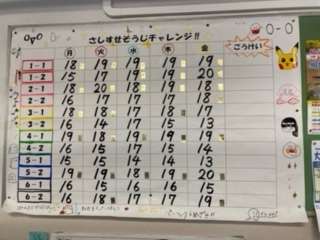 さしすせそうじチャレンジ!!
月 火 水 木 金 ごうけい
1-1 18 19 19 19 19
1-2 15 17 19 19 20
2-1 18 20 18 19 19
2-2 16 17 17 18 17
3-1 18 18 17 19 17
3-2 16 14 17 15 13
4-1 19 19 19 19 19
4-2 16 15 15 14 15
5-1 15 15 14 14 13
5-2 19 19 18 19 20
6-1 15 16 16 16 15
6-2 16 18 17 17 19